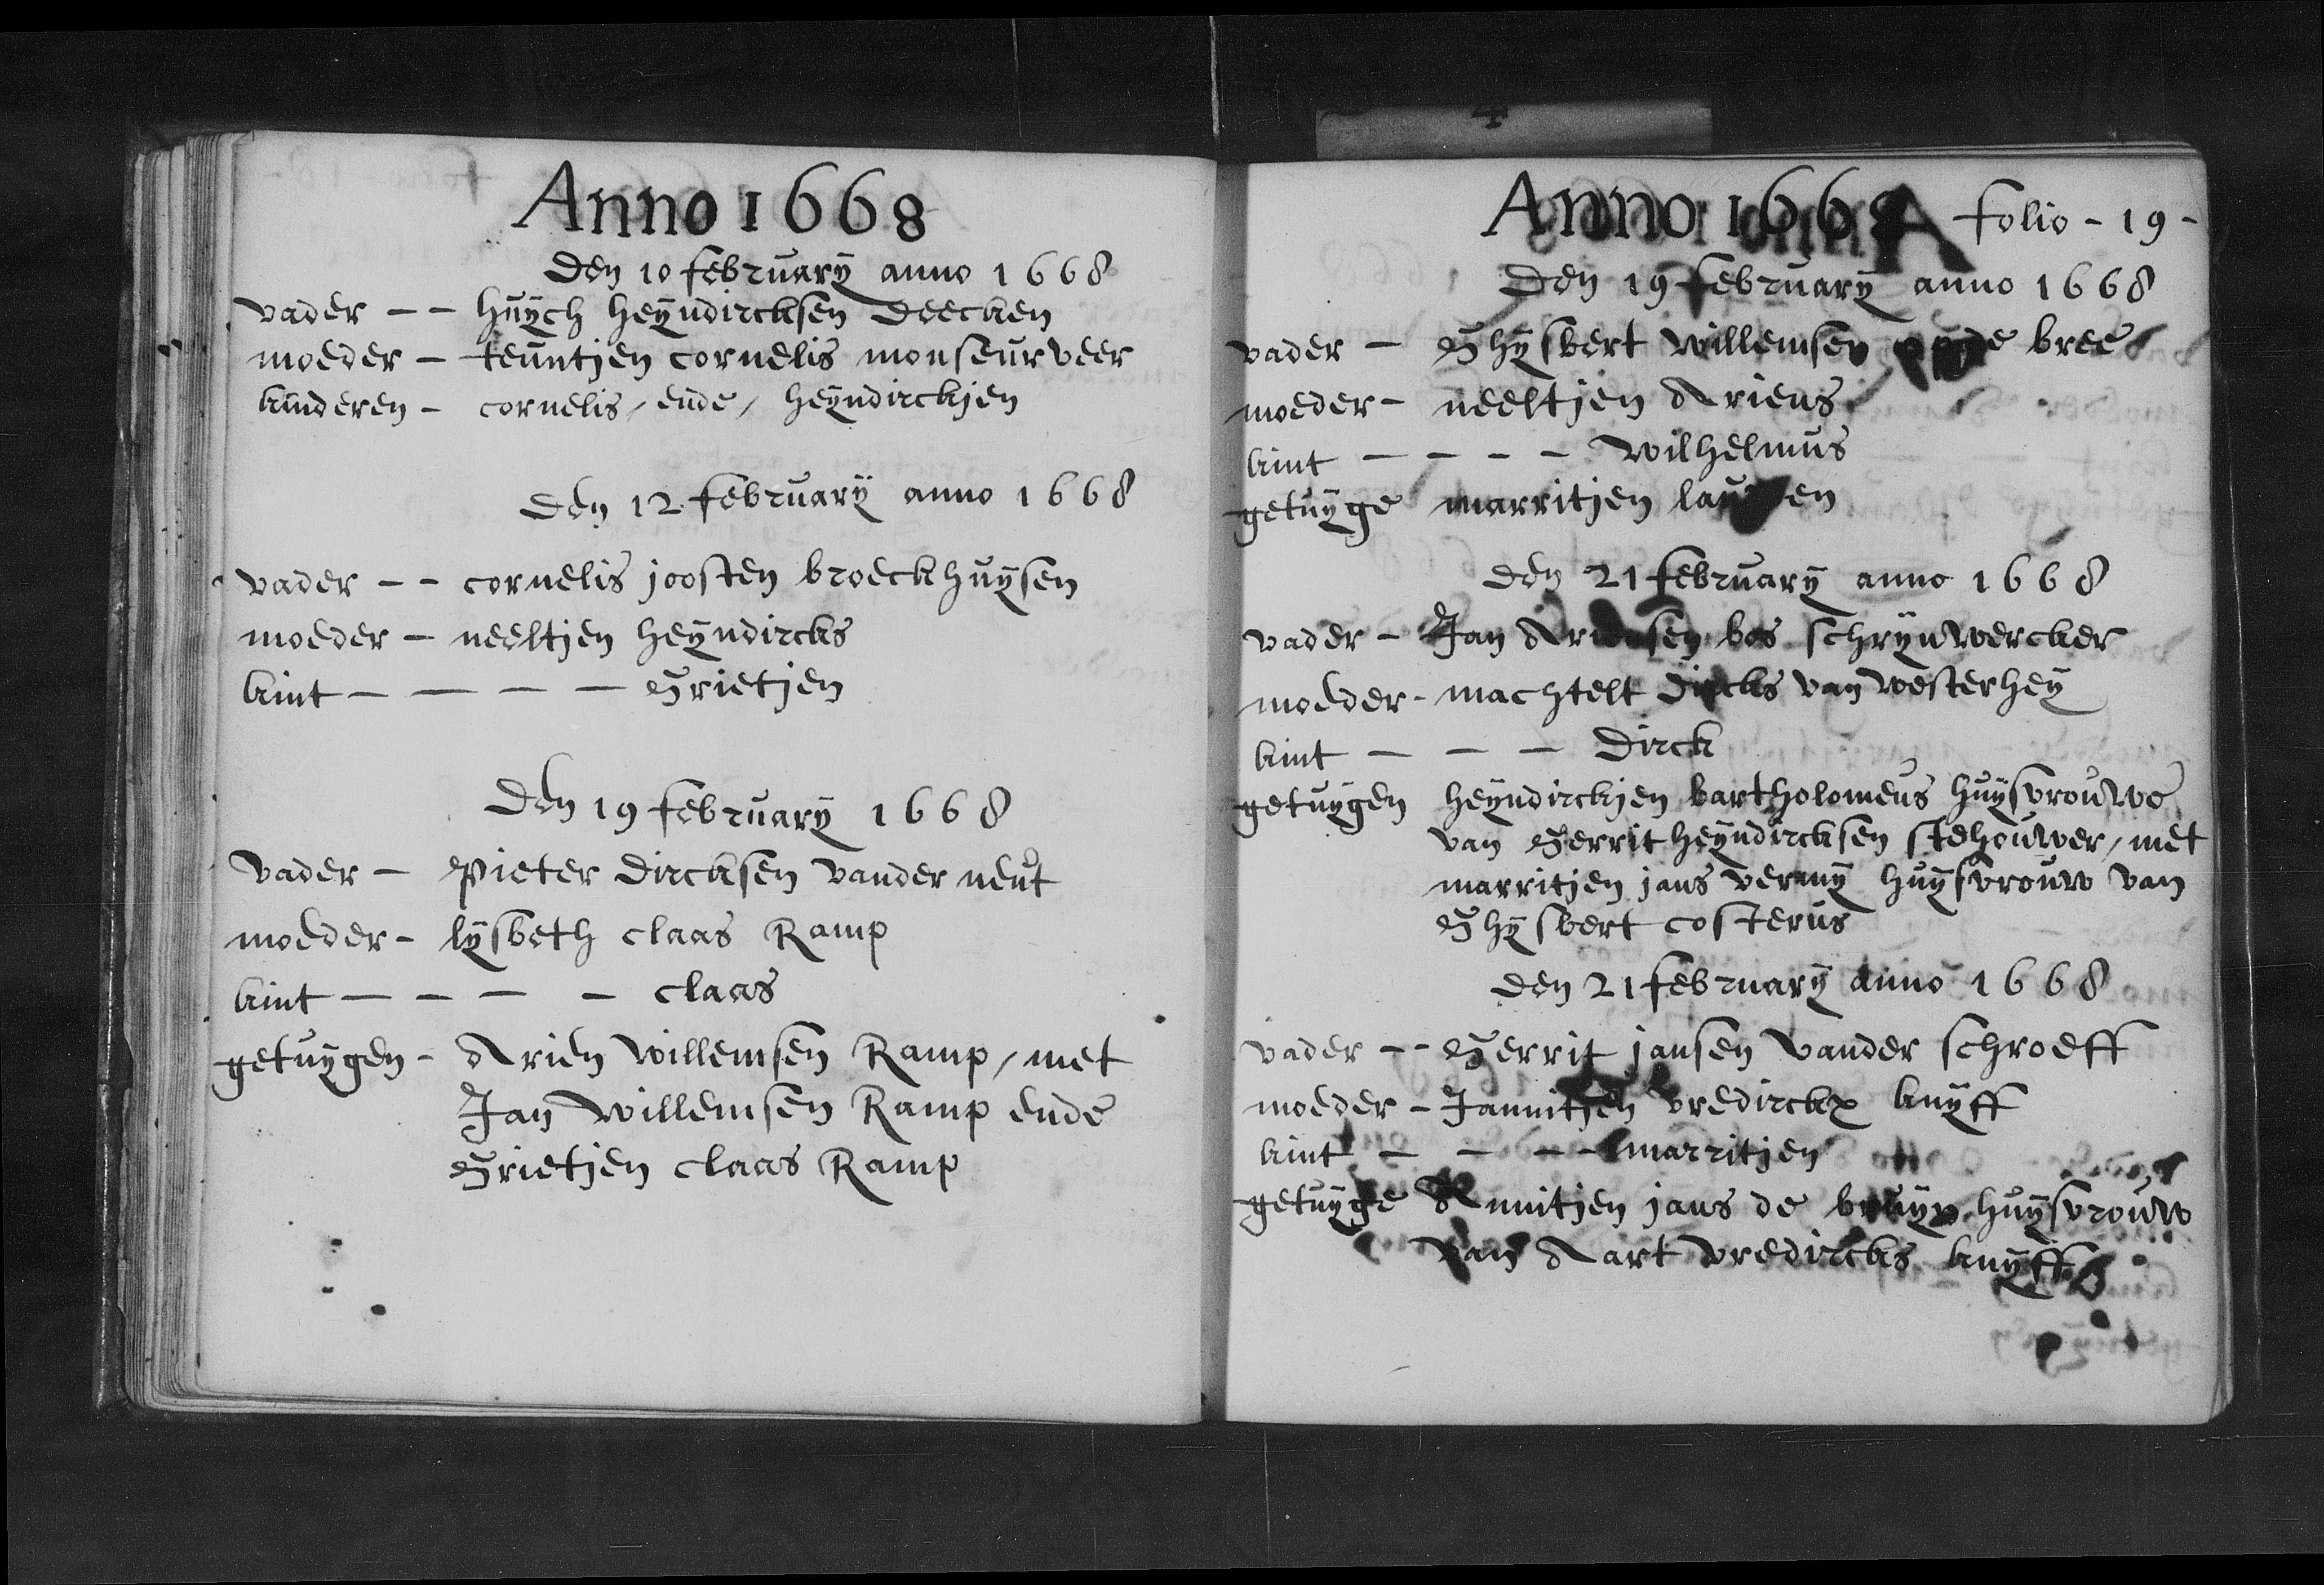 Anno 1668
Den 10 februarÿ anno 1668
vader -- huÿch heÿndircksen deecken
moeder - teuntjen cornelis monseurveer
kinderen - cornelis / ende / heÿndirckjen
Den 12 februarÿ anno 1668
vader -- cornelis joosten broeckhuÿsen
moeder - neeltjen heÿndircks
kint - - - - Grietjen
Den 19 februarÿ 1668
vader - Pieter dircksen vander neut
moeder - lÿsbeth claas Ramp
kint - - - - claas
getuÿgen - Arien willemsen Ramp / met
Jan willemsen Ramp ende
Grietjen claas Ramp
4
Anno 1668 folio - 19 -
Den 19 februarÿ anno 1668
vader - Ghÿsbert willemsen bree
moeder - neeltjen Ariens
kint - - - - wilhelmus
getuÿge marritjen
Den 21 februarÿ anno 1668
vader - Jan Ariensen bos schrÿnwercker
moeder - machtelt dircks van westerheÿ
kint - - - Dirck
getuÿgen heÿndirckjen bartholomeus huÿsvrouwe
van Gerrit heÿndircksen stehouwer / met
marritjen jans huÿsvrouw van
Ghÿsbert costerus
Den 21 februarÿ anno 1668
vader -- Gerrit jansen vander schroeff
moeder - Jannitjen vredirckx knÿff
kint - - - - marritjen
getuÿge Annitjen jans de bruÿn huÿsvrouw
van Aart vredircks knÿff